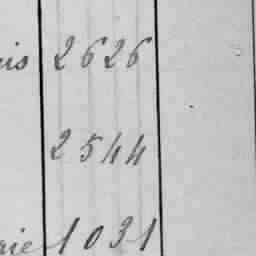 is 2626
2544
rie 1031